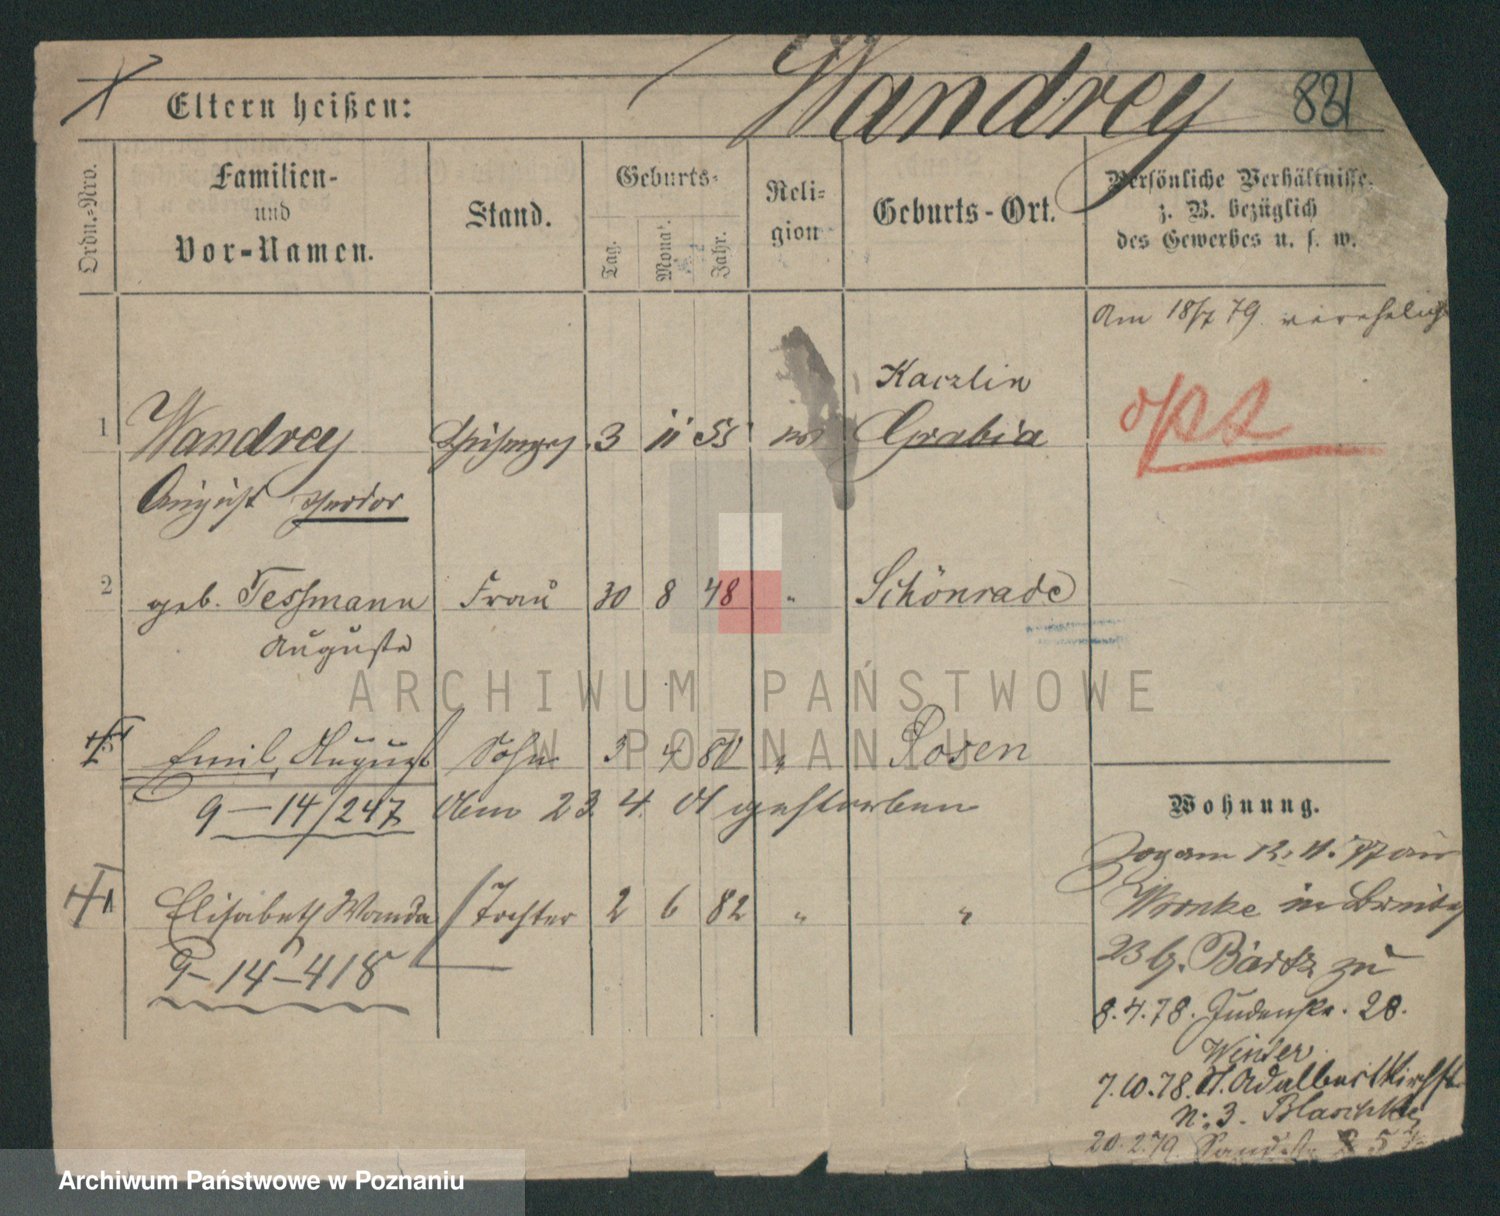 Wandrey
831
Eltern heißen:
Ordn.-Nro.
Familien-
und
Vor-Namen.
Stand.
Geburts-
Tag.
Monat.
Jahr.
Reli-
gion
Geburts-Ort.
Persönliche Verhältnisse,
z. B. bezüglich
des Gewerbes u. s. w.
Am 18/7 79 verehelicht
Kaczlin
1 Wandrey 3 11 55 Grabia
August Theodor
2 geb. Tessmann Frau 30 8 48 " Schönrade
Auguste
ARCHIWUM PAŃSTWOWE
W POZNANIU
Emil, August Sohn 3 4 80 " Posen
9-14/247 Am 23. 4. 01 gestorben
Elisabeth Wanda Tochter 2 6 82 " "
9-14-418
Wohnung.
Zog am 12. 11. 77 aus
Wronke in
23 b. Bartz zu
8.4.78. Judenstr. 28.
Winter
7.10.78. St. Adalbertkirchstr
N: 3. Blaschke
20.2.79. Sandstr
Archiwum Państwowe w Poznaniu